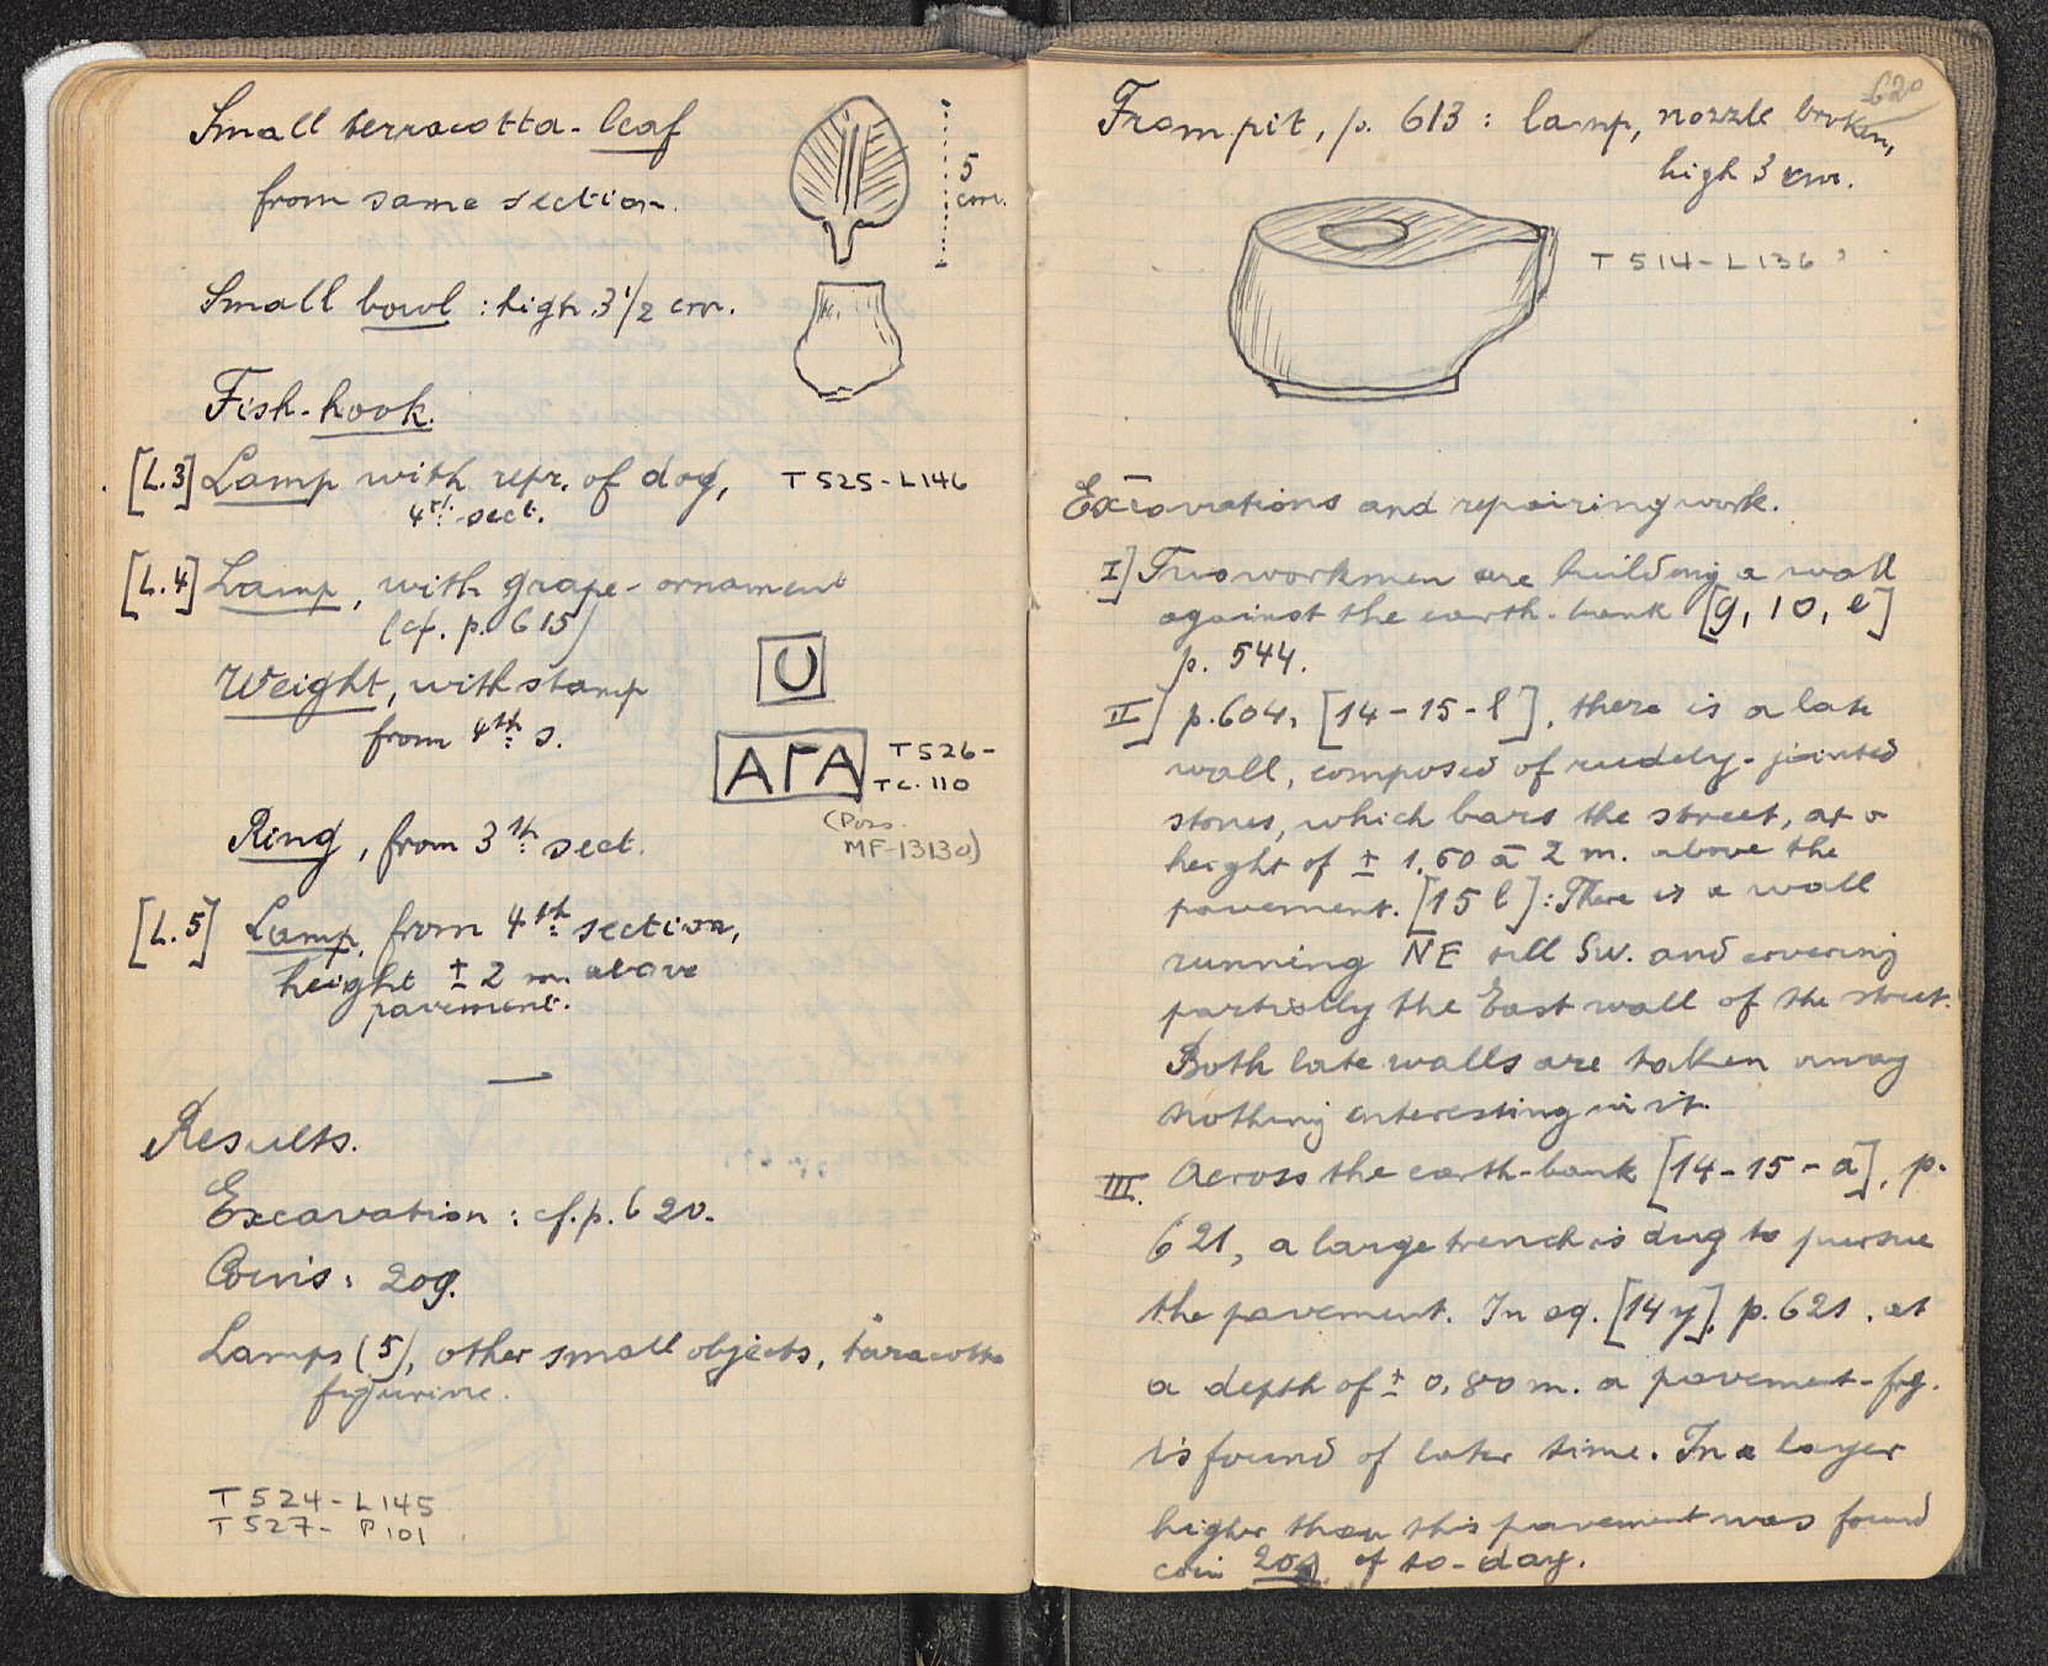 Small terracotta-leaf
from same section.
5
cm.
Small bowl : high 3 1/2 cm.
Fish-hook.
[L.3] Lamp with repr. of dog, T 525 - L 146
4th sect.
[L.4] Lamp, with grape-ornament
(cf. p. 615)
Weight, with stamp
from 4th s.
ΑΓΑ T 526 -
Tc. 110
(Poss.
MF-13130)
Ring, from 3th sect.
[L.5] Lamp, from 4th section,
height ± 2 m. above
pavement.
Results.
Excavation : cf. p. 620.
Coins : 209.
Lamps (5), other small objects, taracotta
figurine.
T 524 - L 145
T 527 - P 101
620
From pit, p. 613 : lamp, nozzle broken,
high 3 cm.
T 514 - L 136
Excavations and repairing work.
I] Two workmen are building a wall
against the earth-bank [9, 10, e]
p. 544.
II] p. 604, [14-15-l], there is a late
wall, composed of rudely-jointed
stones, which bars the street, at a
height of ± 1.60 à 2 m. above the
pavement. [15 l] : There is a wall
running NE till SW. and covering
partially the East wall of the street.
Both late walls are taken away
nothing interesting in it.
III. Across the earth-bank [14-15-a], p.
621, a large trench is dug to pursue
the pavement. In sq. [14 y], p. 621, at
a depth of ± 0,80 m. a pavement-frg.
is found of later time. In a layer
higher than this pavement was found
coin of to-day.